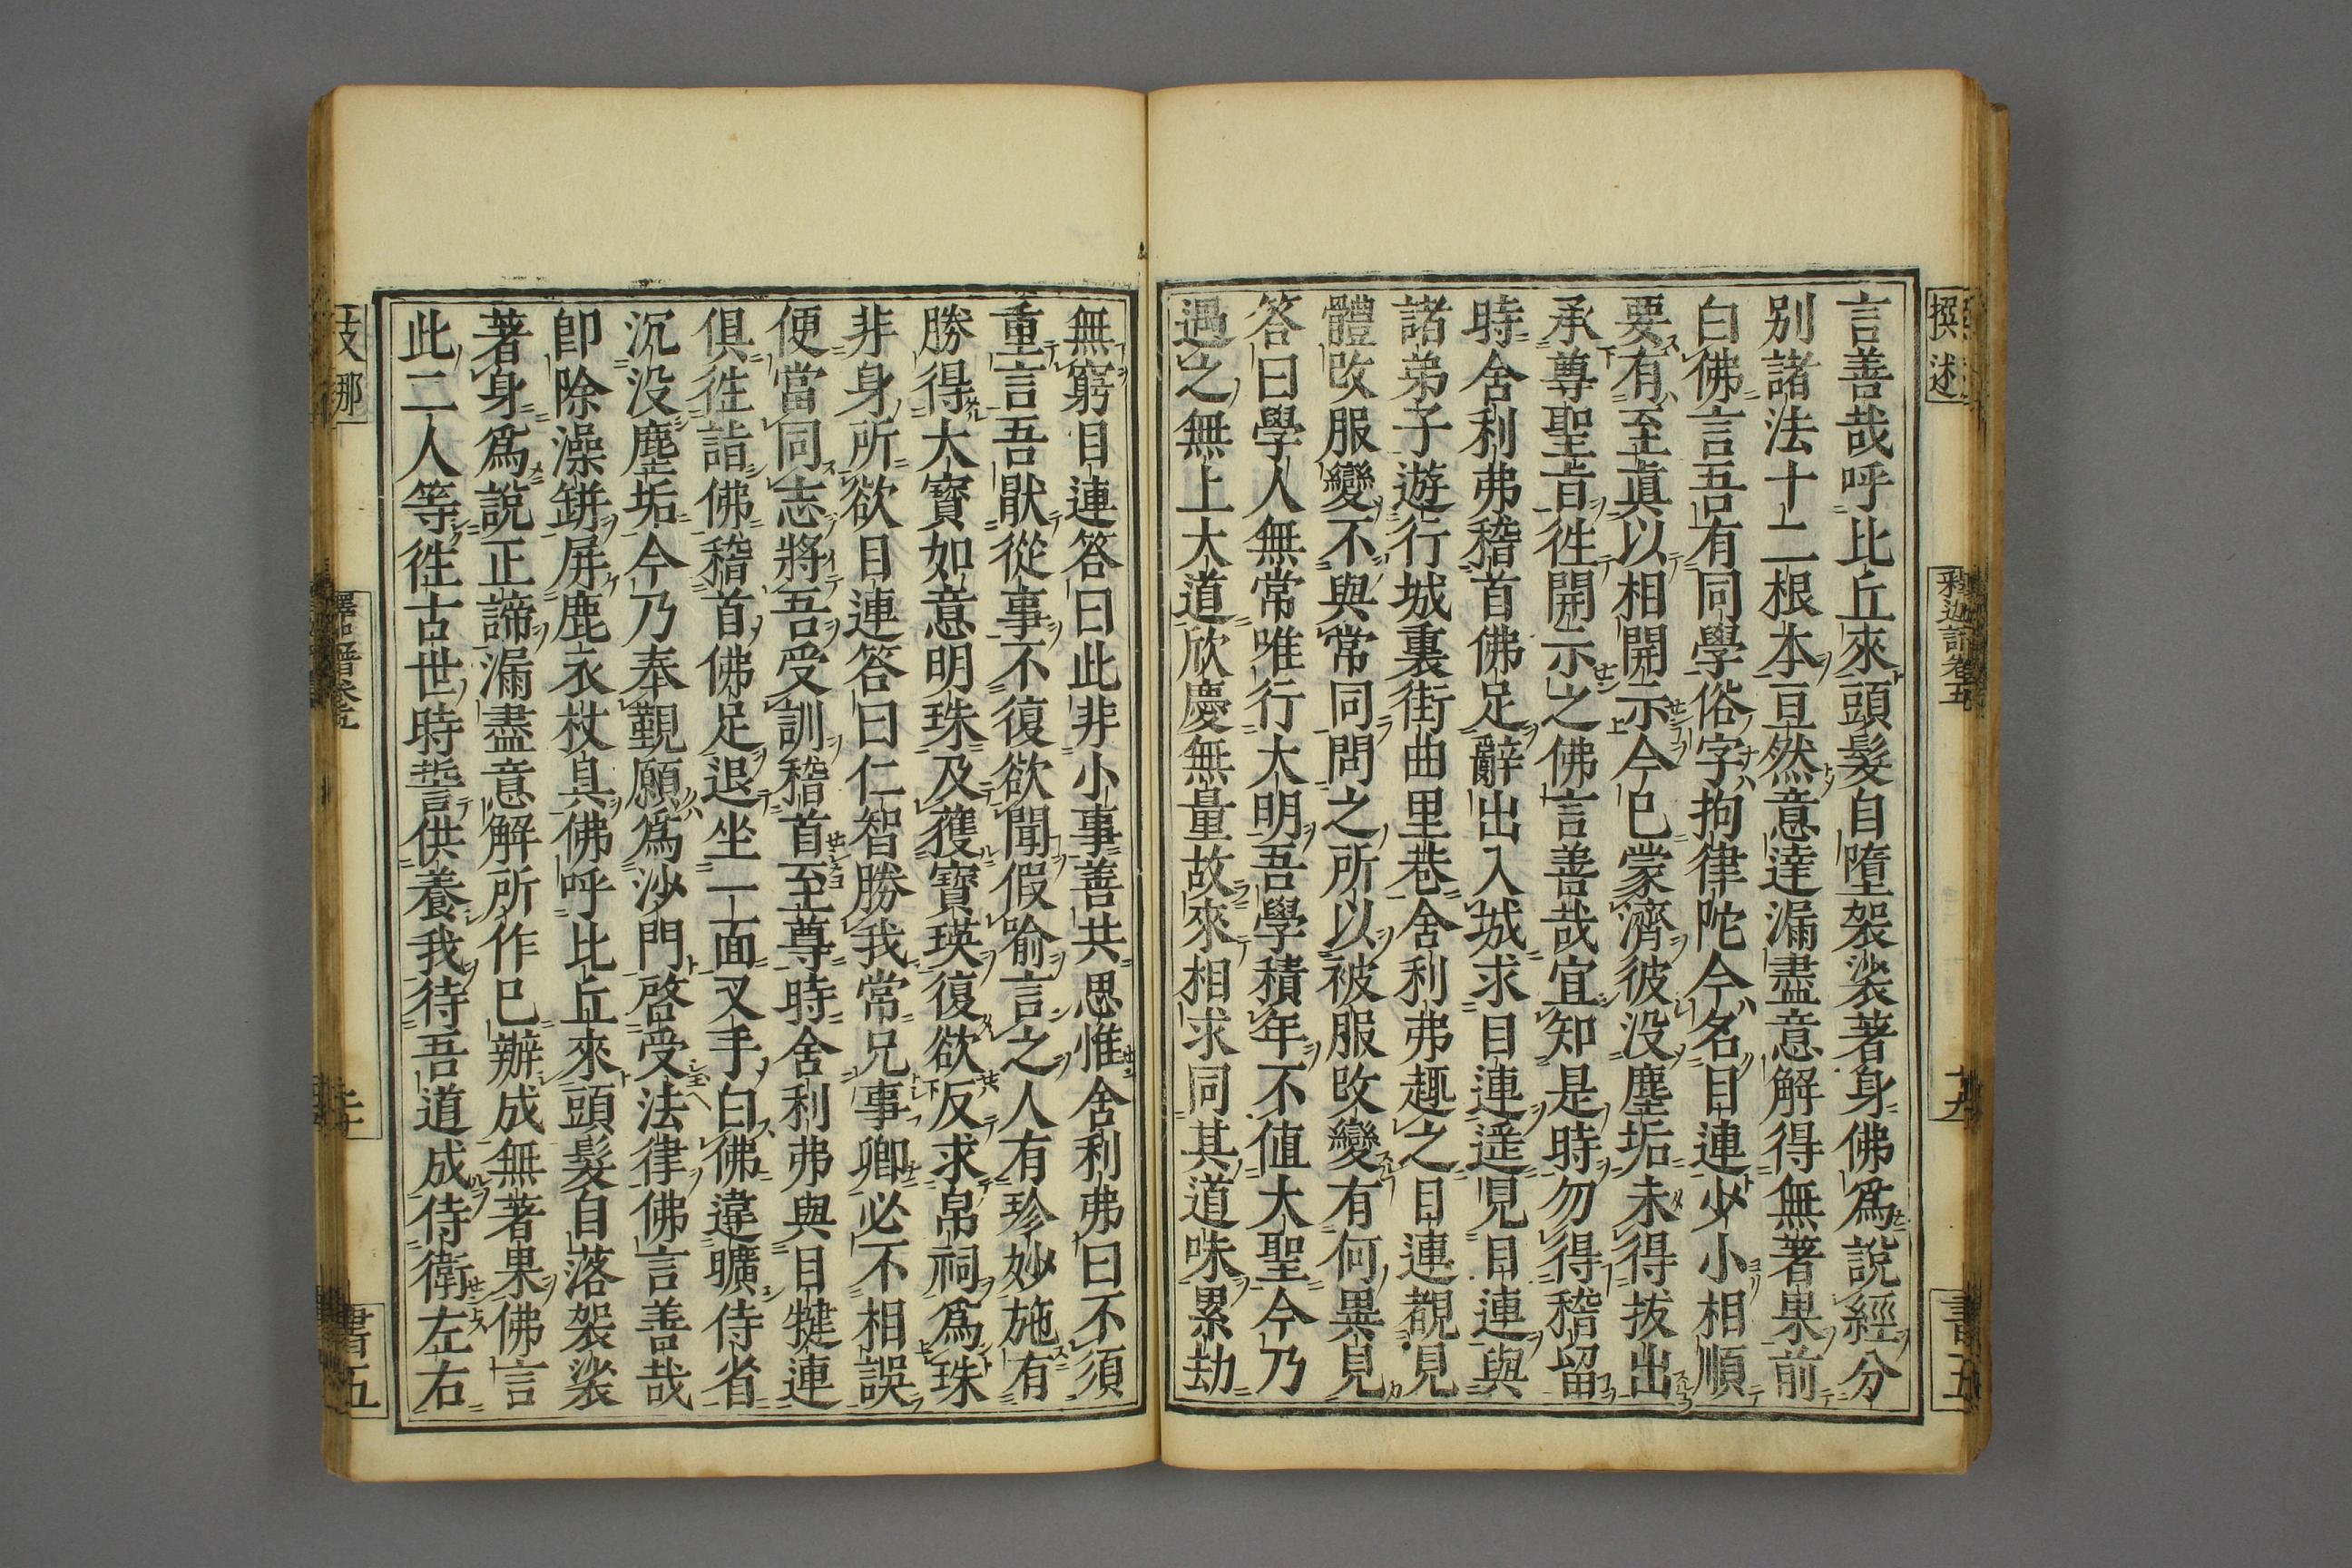 言善哉呼比丘來頭髮自墮袈裟著身佛爲說經分
別諸法十二根本亘然意達漏盡意解得無著果前
白佛言吾有同學俗字拘律陀今名目連少小相順
要有至眞以相開示今已蒙濟彼没塵垢未得拔出
承尊聖旨徃開示之佛言善哉宜知是時勿得稽留
時舍利弗稽首佛足辭出入城求目連遥見目連與
諸弟子遊行城裏街曲里巷舍利弗趣之目連覩見
體改服變不與常同問之所以被服改變有何異見
答曰學人無常唯行大明吾學積年不値大聖今乃
遇之無上大道欣慶無量故來相求同其道味累劫
無窮目連答曰此非小事善共思惟舍利弗曰不須
重言吾猒從事不復欲聞假喻言之人有珍妙施有
勝得大寶如意明珠及獲寶瑛復欲反求帛祠爲珠
非身所欲目連答曰仁智勝我常兄事卿必不相誤
便當同志將吾受訓稽首至尊時舍利弗與目揵連
俱徃詣佛稽首佛足退坐一面叉手白佛違曠侍省
沉没塵垢今乃奉覲願爲沙門啓受法律佛言善哉
卽除澡缾屏鹿衣杖具佛呼比丘來頭髮自落袈裟
著身爲說正諦漏盡意解所作已辦成無著果佛言
此二人等徃古世時誓供養我待吾道成侍衛左右
撰述
釋迦譜卷五
十九
書五
支那
書五